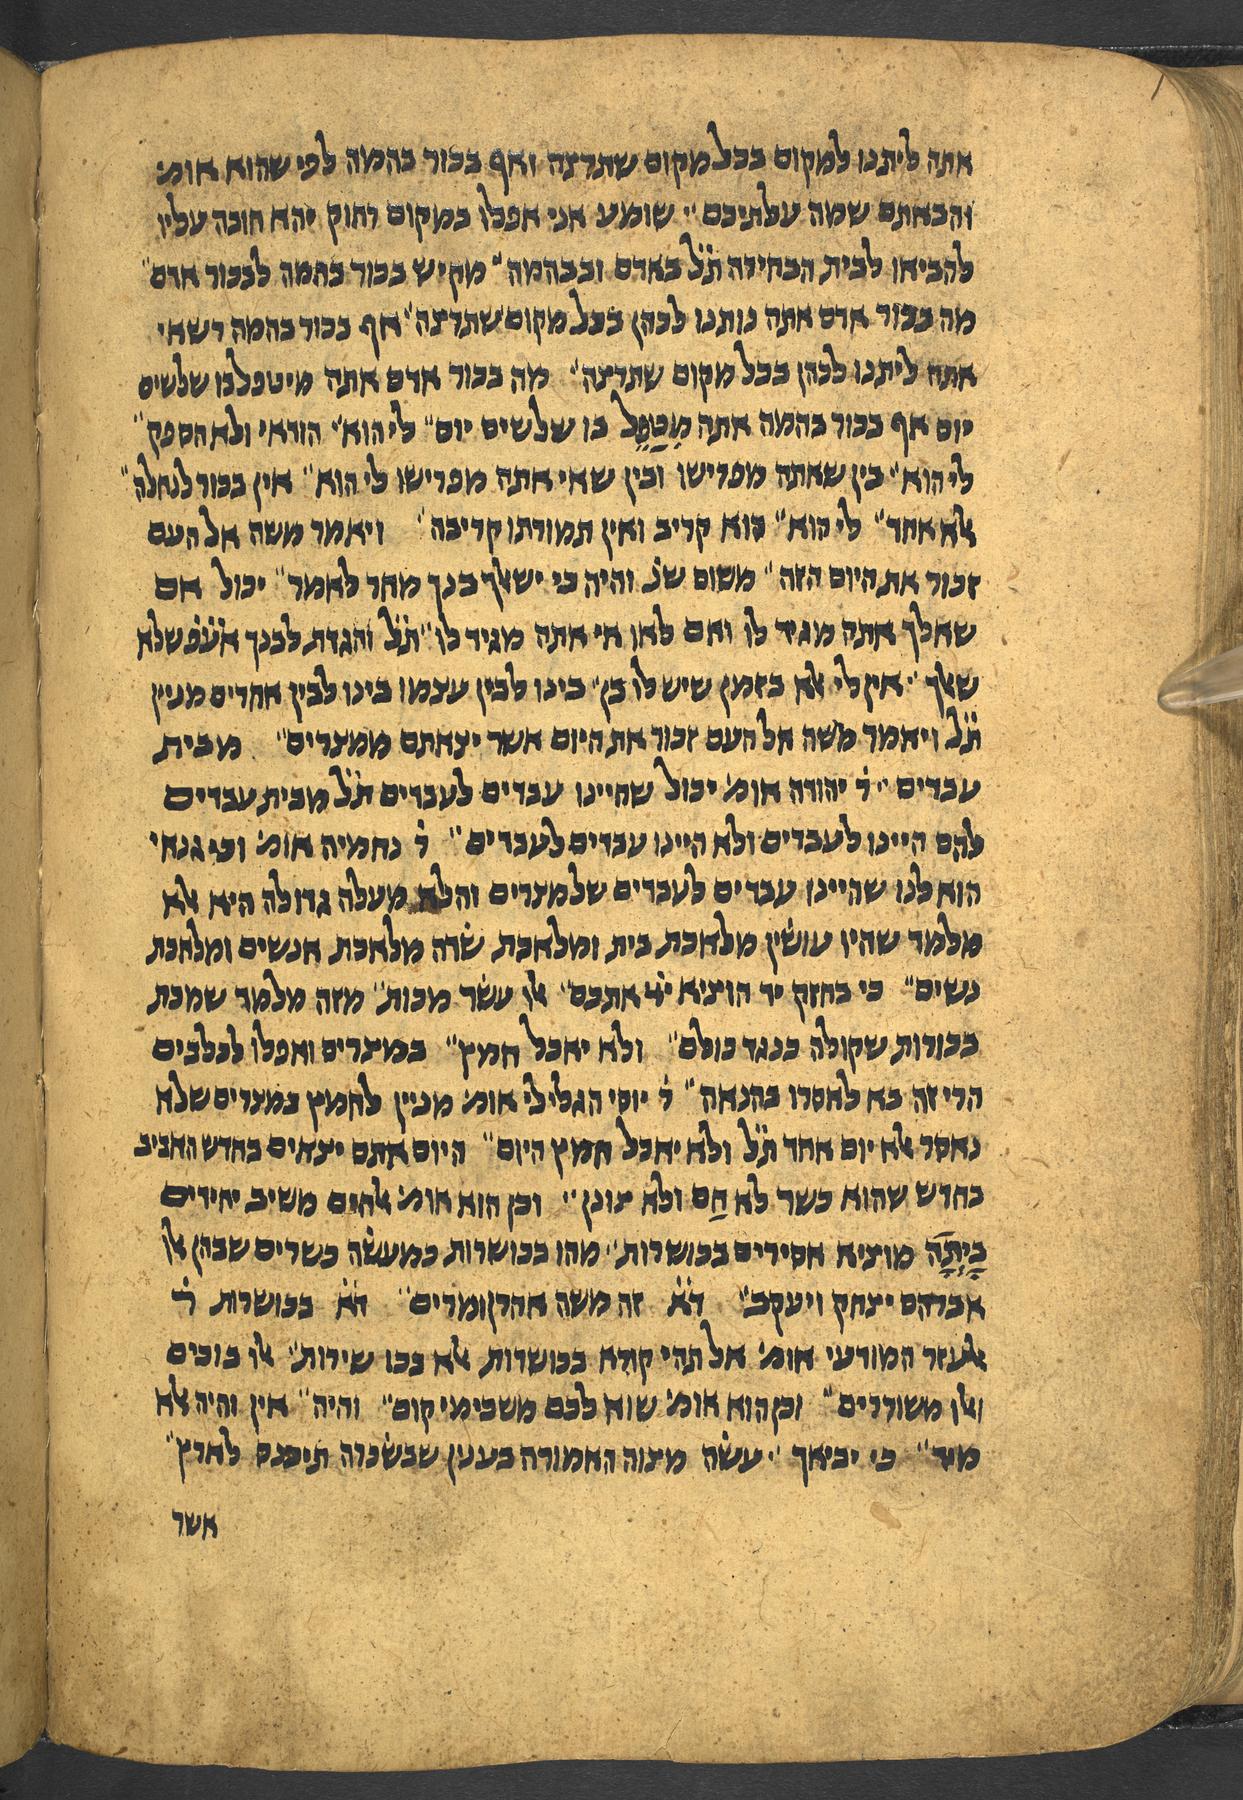 אתה ליתנו למקום בכל מקום שתרצה ואף בכור בהמה לפי שהוא אומ׳
והבאתם שמה עלתיכם״ שומע אני אפלו במקום רחוק יהא חובה עליו
להביאו לבית הבחירה ת̇ל̇ באדם ובבהמה״ מקיש בכור בהמה לבכור אדם״
מה בכור אדם אתה נותנו לכהן בכל מקום שתרצה״ אף בכור בהמה רשאי
אתה ליתנו לכהן בכל מקום שתרצה״ מה בכור אדם אתה מיטפל בו שלשים
יום אף בכור בהמה אתה מִטַפֵל בו שלשים יום״ לי הוא״ הודאי ולא הספק״
לי הוא״ בין שאתה מפרישו ובין שאי אתה מפרישו לי הוא״ אין בכור לנחלה״
אלא אחד״ לי הוא״ הוא קריב ואין תמורתו קריבה״ ויאמר משה אל העם
זכור את היום הזה״ משום שנ̇ והיה כי ישאלך בנך מחר לאמר״ יכול אם
שאלך אתה מגיד לו ואם לאו אי אתה מגיד לו״ ת̇ל̇ והגדת לבנך אע̇פ̇ שלא
שאלך״ אין לי אלא בזמן שיש לו בן״ בינו לבין עצמו בינו לבין אחרים מנין
ת̇ל̇ ויאמר משה אל העם זכור את היום אשר יצאתם ממצרים״ מבית
עבדים״ ר̇ יהודה אומ׳ יכול שהיינו עבדים לעבדים ת̇ל̇ מבית עבדים
להם היינו לעבדים ולא היינו עבדים לעבדים״ ר̇ נחמיה אומ׳ וכי גנאי
הוא לנו שהיינו עבדים לעבדים של מצרים והלא מעלה גדולה היא אלא
מלמד שהיו עושין מלאכת בית ומלאכת שדה מלאכת אנשים ומלאכת
נשים״ כי בחזק יד הוציא ייי אתכם״ אלו עשר מכות״ מזה מלמד שמכת
בכורות שקולה כנגד כולם״ ולא יאכל חמץ״ במצרים ואפלו לכלבים
הרי זה בא לאסרו בהנאה״ ר̇ יוסי הגלילי אומ׳ מנין לחמץ במצרים שלא
נאסר אלא יום אחד ת̇ל̇ ולא יאכל חמץ היום״ היום אתם יצאים בחדש האביב
בחדש שהוא כשר לא חַם ולא צונן״ וכן הוא אומ׳ אלהים משיב יחידים
בַיְתָה מוציא אסירים בכושרות״ מהו בכושרות כמעשה כשרים שבהן אלו
אברהם יצחק ויעקב״ ד̇א̇ זה משה אהרן ומרים״ ד̇א̇ בכושרות ר̇
אלעזר המודעי אומ׳ אל תהי קורא בכושרות אלא בכו שירות״ אלו בוכים
ואלו משוררים״ וכן הוא אומ׳ שוא לכם משכימי קום״ והיה״ אין והיה אלא
מיד״ כי יביאך״ עשה מצוה האמורה בענין שבשכרה תיכנס לארץ״
אשר